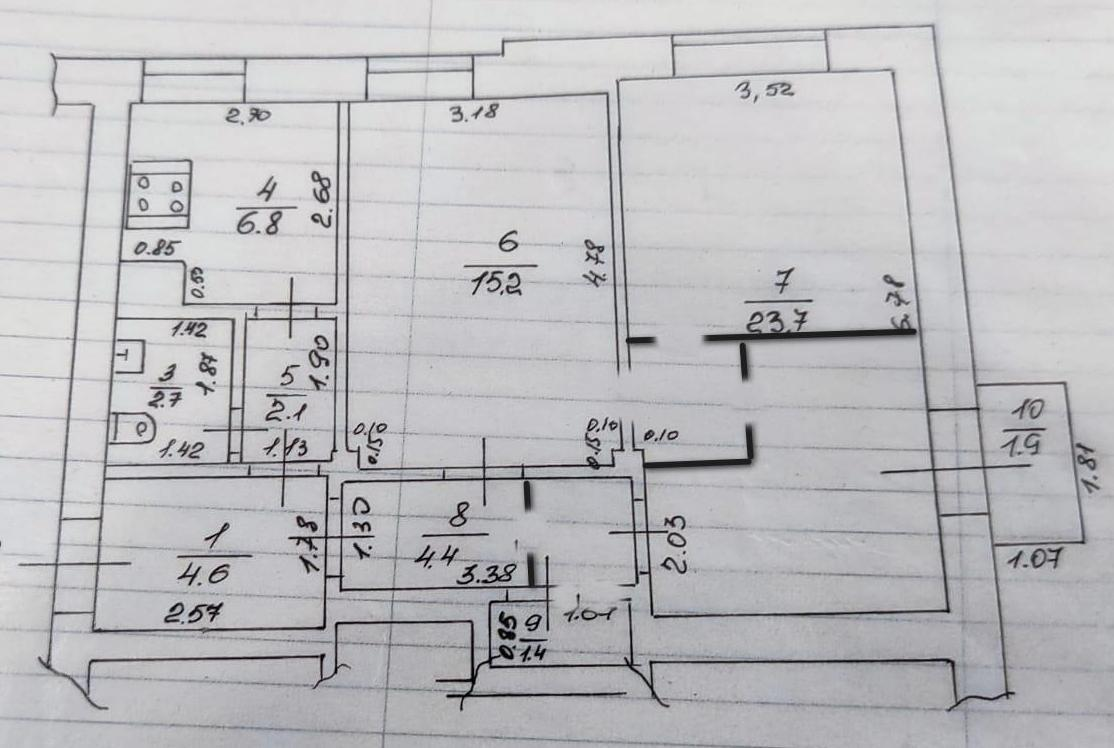 2,90
3.18
3,52
4
6.8
2.68
0.85
0.50
6
15.2
4.78
7
23.7
5.78
1.42
3
2.7
1.87
1.42
5
2.1
1.90
1.13
0.10
0.15
0.10
0.15
0.10
10
1.9
1.81
1.07
1
4.6
1.78
2.57
1.30
8
4.4
3.38
2.03
0.85
9
1.4
1.01